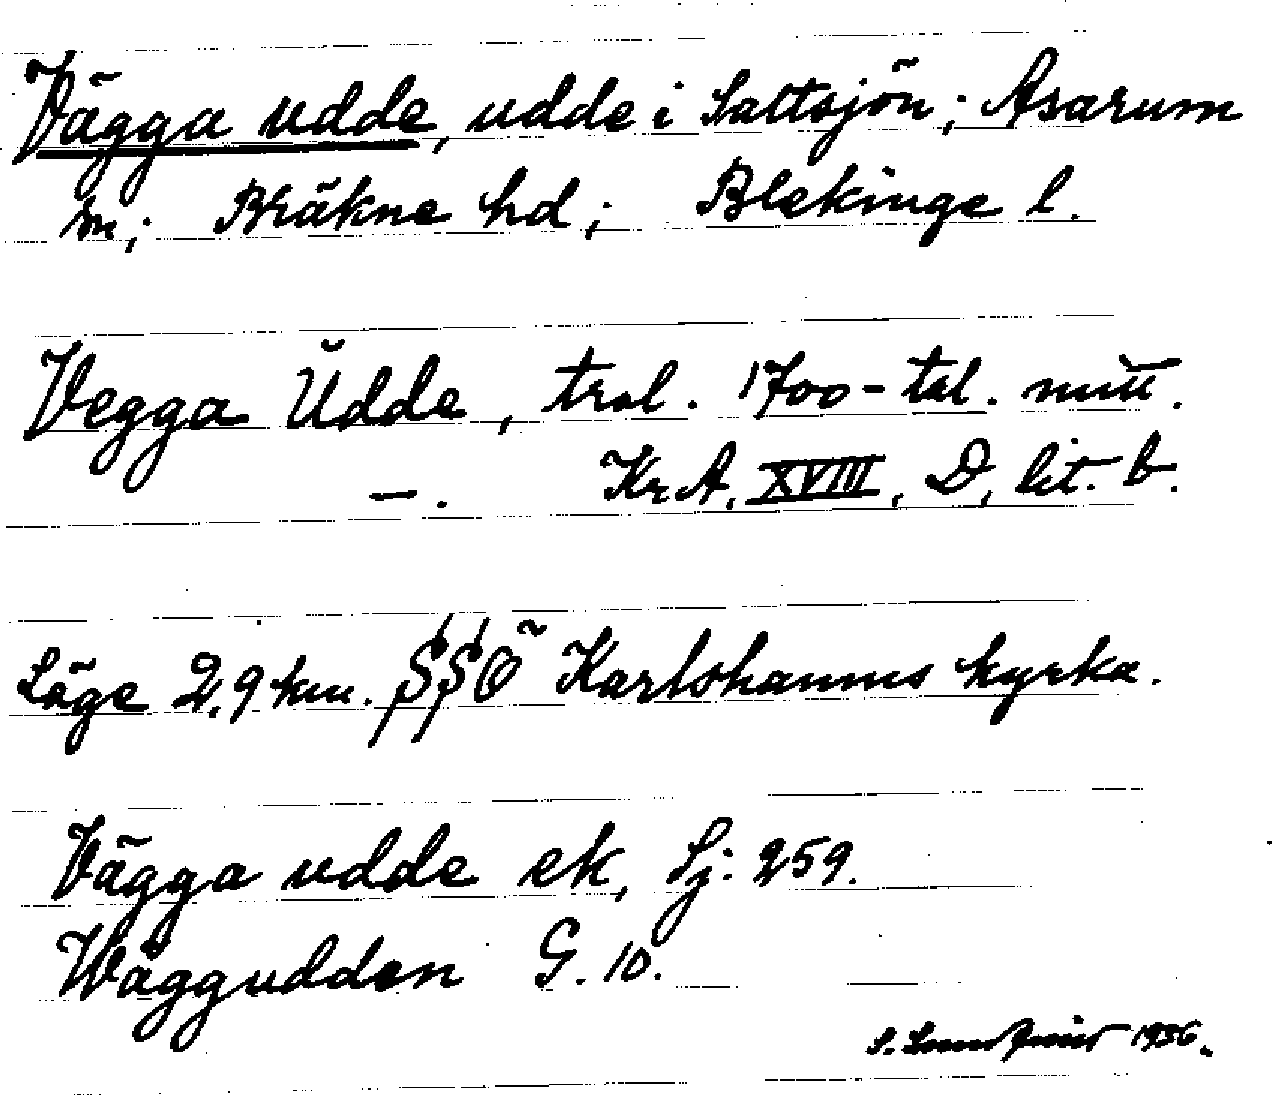 Vägga udde, udde i Saltsjön; Asarum
sn; Bräkne hd; Blekinge l.
Vegga Udde, trol. 1700-tal. mitt.
—. Kr.A. XVIII, D, lit. b.
Läge 2,9 km. SSO Karlshamns kyrka.
Vägga udde ek, Sj: 259.
Wäggudden G. 10.
S. 1936.